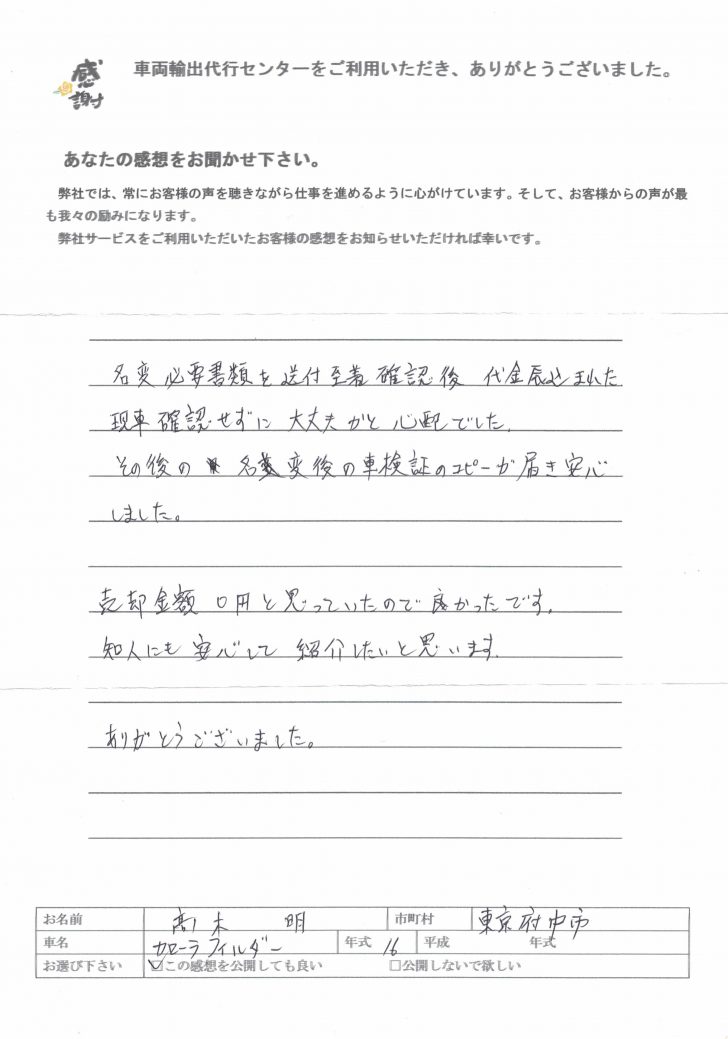 感謝
車両輸出代行センターをご利用いただき、ありがとうございました。
あなたの感想をお聞かせ下さい。
弊社では、常にお客様の声を聴きながら仕事を進めるように心がけています。そして、お客様からの声が最
も我々の励みになります。
弊社サービスをご利用いただいたお客様の感想をお知らせいただければ幸いです。
名変必要書類を送付至着確認後 代金振込まれた
現車確認せずに大丈夫かと心配でした。
その後の 名変後の車検証のコピーが届き安心
しました。
売却金額0円と思っていたので良かったです。
知人にも安心して紹介したいと思います。
ありがとうございました。
お名前 髙木 明 市町村 東京府中市
車名 カローラフィルダー 年式 16 平成 年式
お選び下さい ☑この感想を公開しても良い □公開しないで欲しい